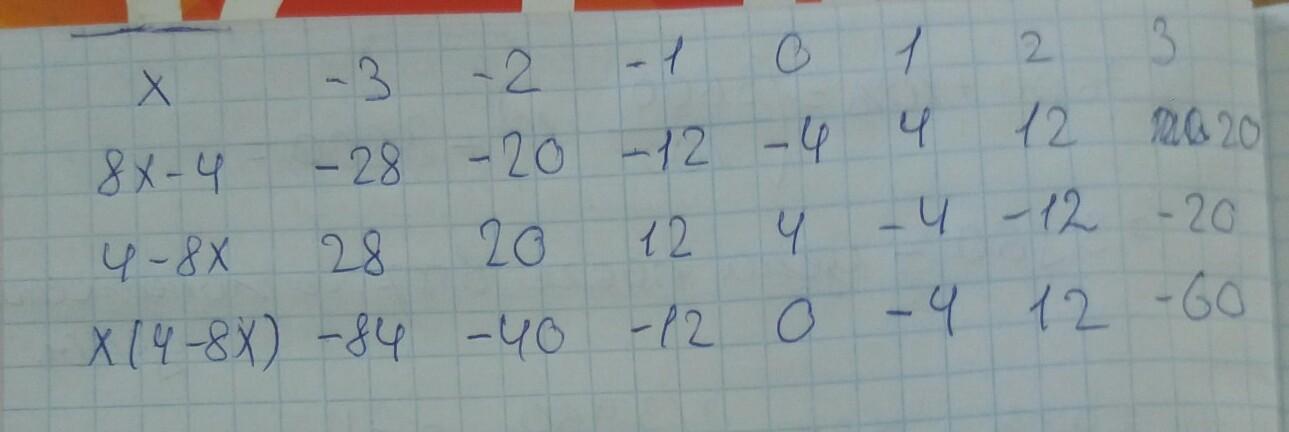 x -3 -2 -1 0 1 2 3
8x-4 -28 -20 -12 -4 4 12 20
4-8x 28 20 12 4 -4 -12 -20
x(4-8x) -84 -40 -12 0 -4 12 -60